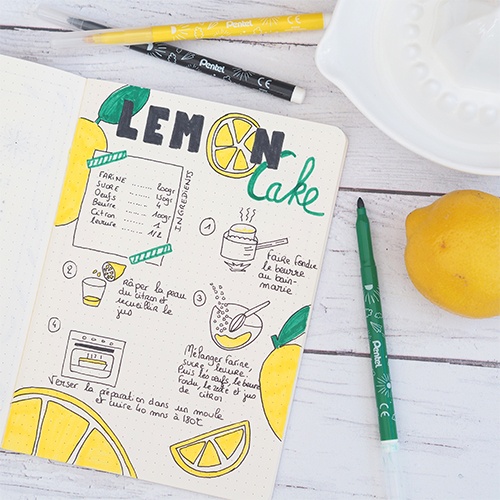 Pentel
Pentel
CE
CE
LEMON
Cake
INGREDIENTS
FARINE ......... 100gr
SUCRE ......... 130gr
Oeufs ......... 4
Beurre ......... 100gr
Citron ......... 1
levure ......... 1/2
1
faire fondre
le beurre
au bain-
marie
2
Râper la peau
du citron et
recueillir le
jus
3
Mélanger farine,
sucre, levure.
Puis les œufs, le beurre
fondu, le zeste et jus
de citron
4
Verser la préparation dans un moule
et cuire 40 mns à 180°C
Pentel
CE